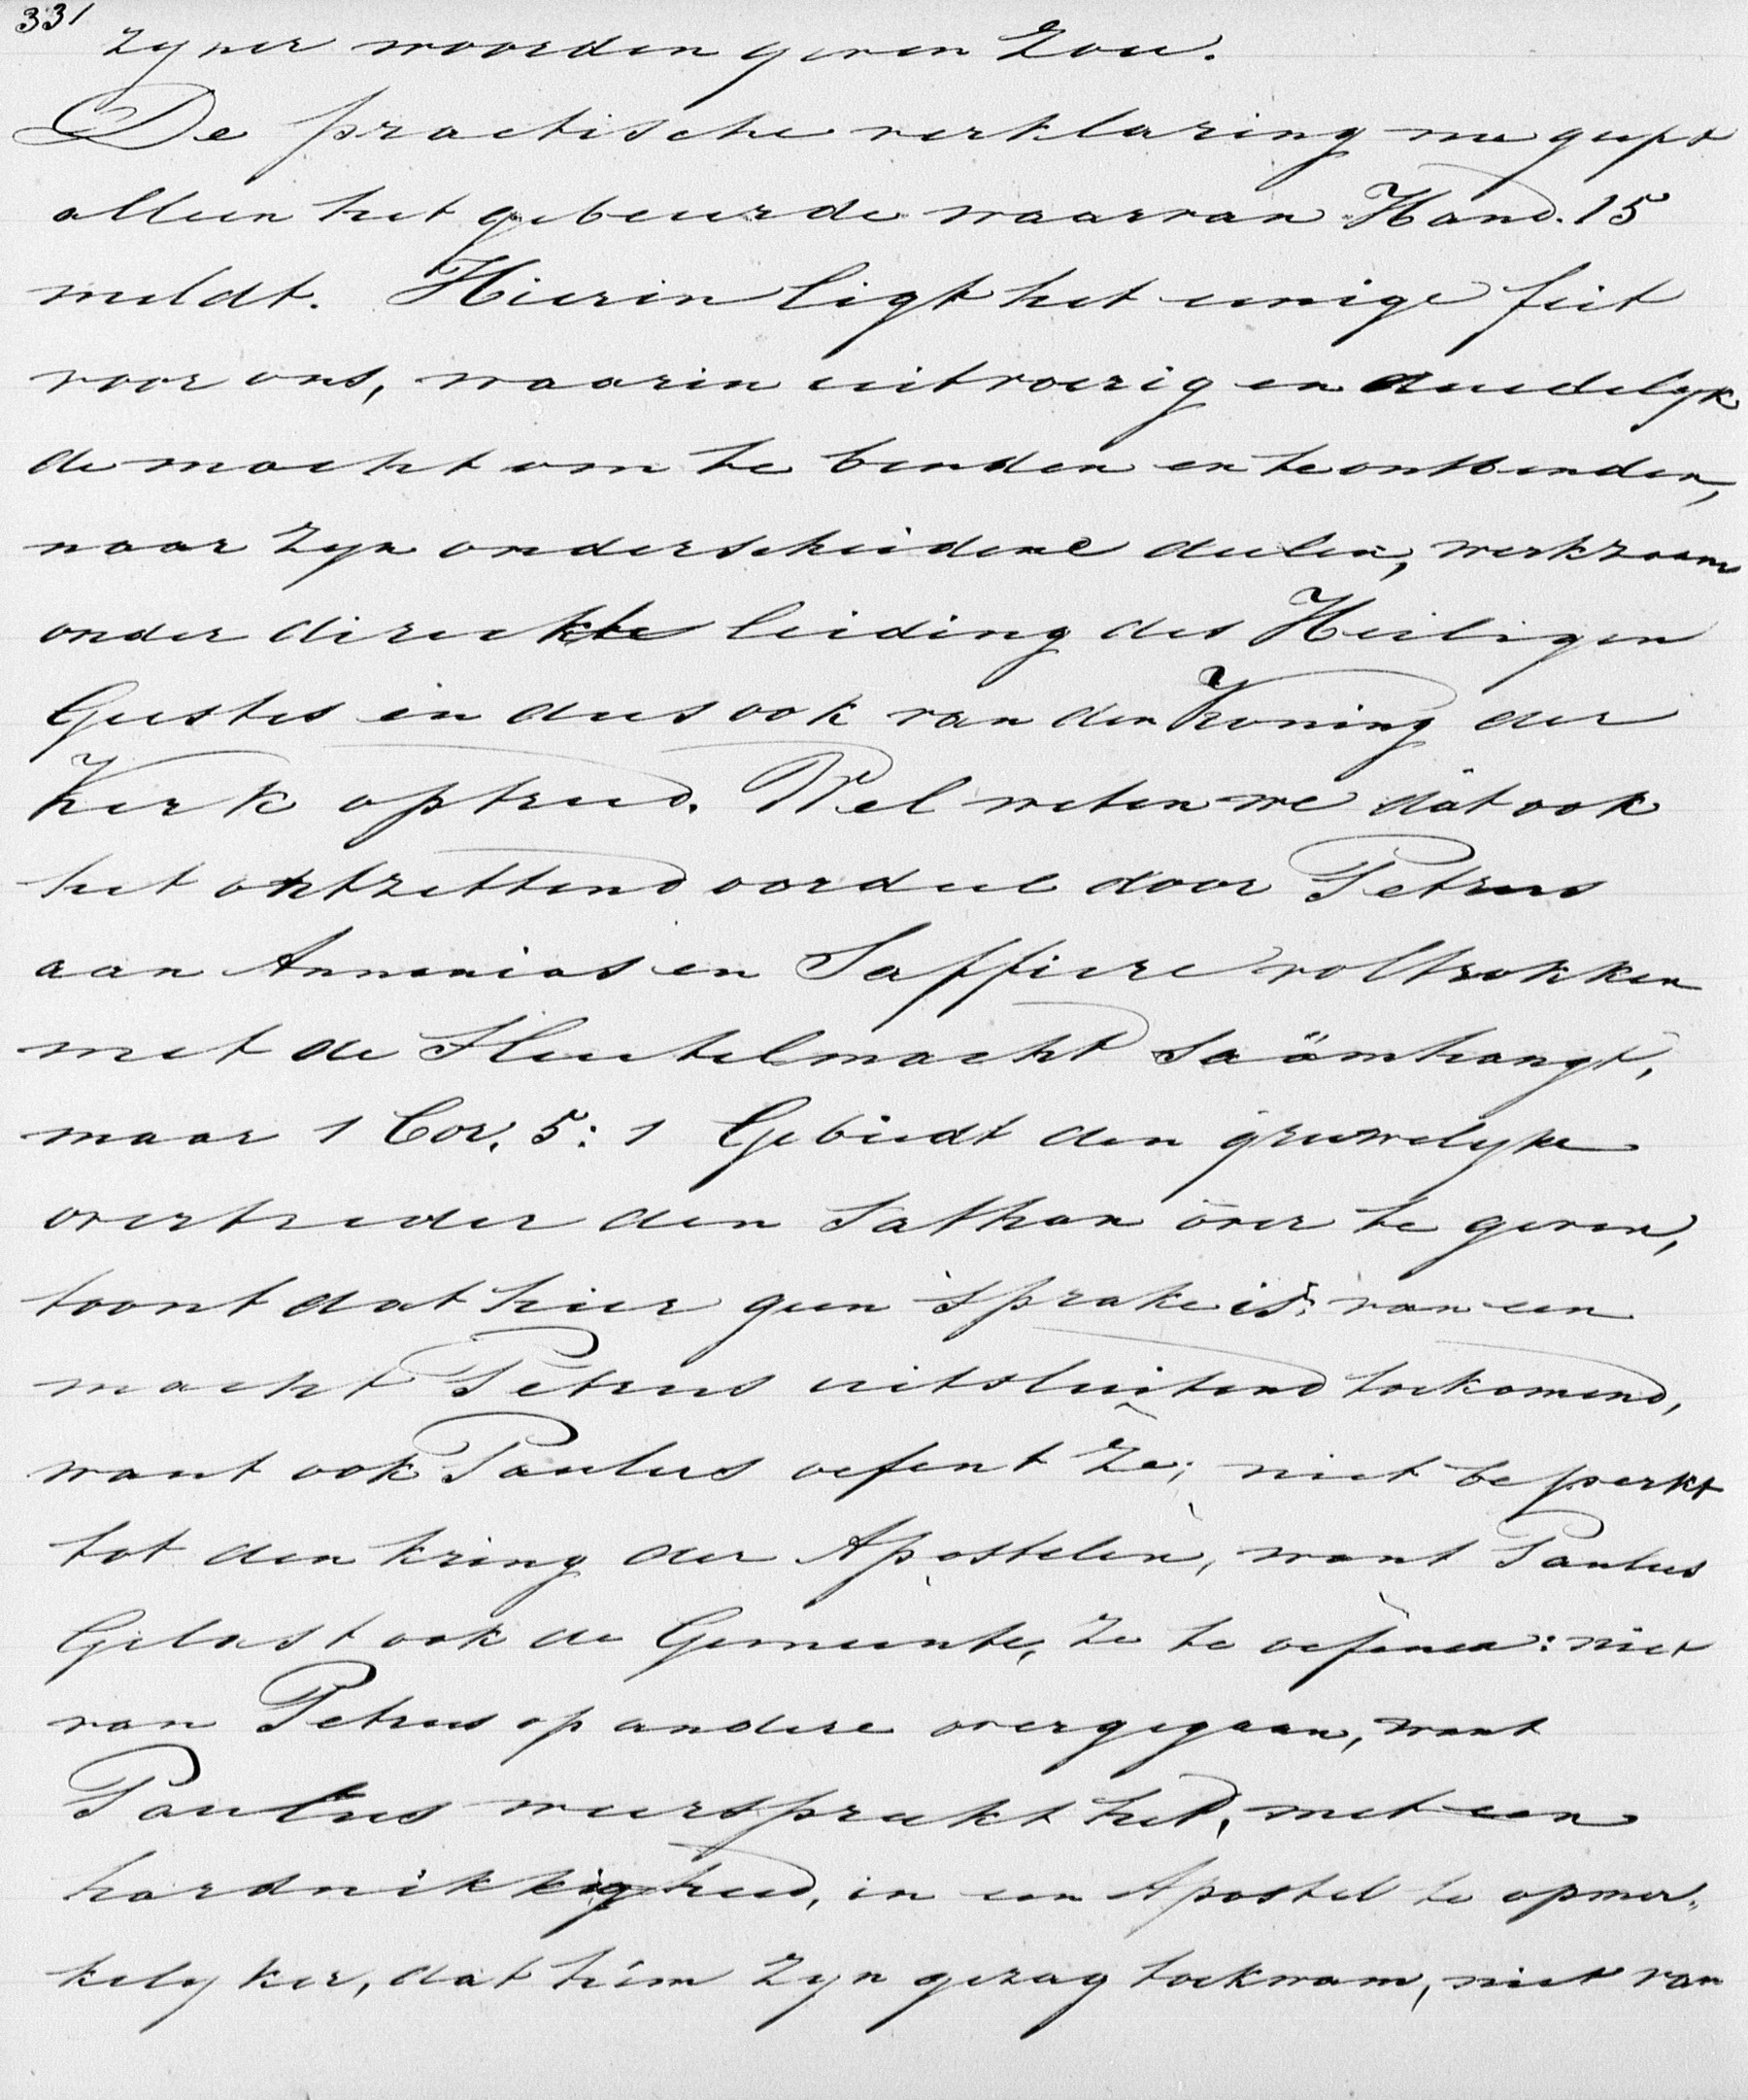 331
zyner woorden geven zou.
De practische verklaring nu geeft
alleen het gebeurde waarvan Hand. 15
meldt. Hierin ligt het eenige feit
voor ons, waarin uitvoerig en duidelyk
de macht om te binden en te ontbinden,
naar zyn onderscheidene deelen, werkzaam
onder direckte leiding des Heiligen
Geestes en dus ook van den Koning der
Kerk optreed. Wel weten we dat ook
het ontzettend oordeel door Petrus
aan Annanias en Saffiere voltrokken
met de Sleutelmacht saâmhangt,
maar 1 Cor. 5:1 Gebiedt den gruwelyke
overtreder den Sathan over te geven,
toont dat hier geen sprake is van een
macht Petrus uitsluitend toekomend,
want ook Paulus oefent ze; niet beperkt
tot den kring der Apostelen, want Paulus
Gelast ook de Gemeente, ze te oefenen: niet
van Petrus op andere overgegaan, want
Paulus weerspreekt het, met een
hardnikkigheid, in een Apostel te opmer„
kelyker, dat hem zyn gezag toekwam, niet van